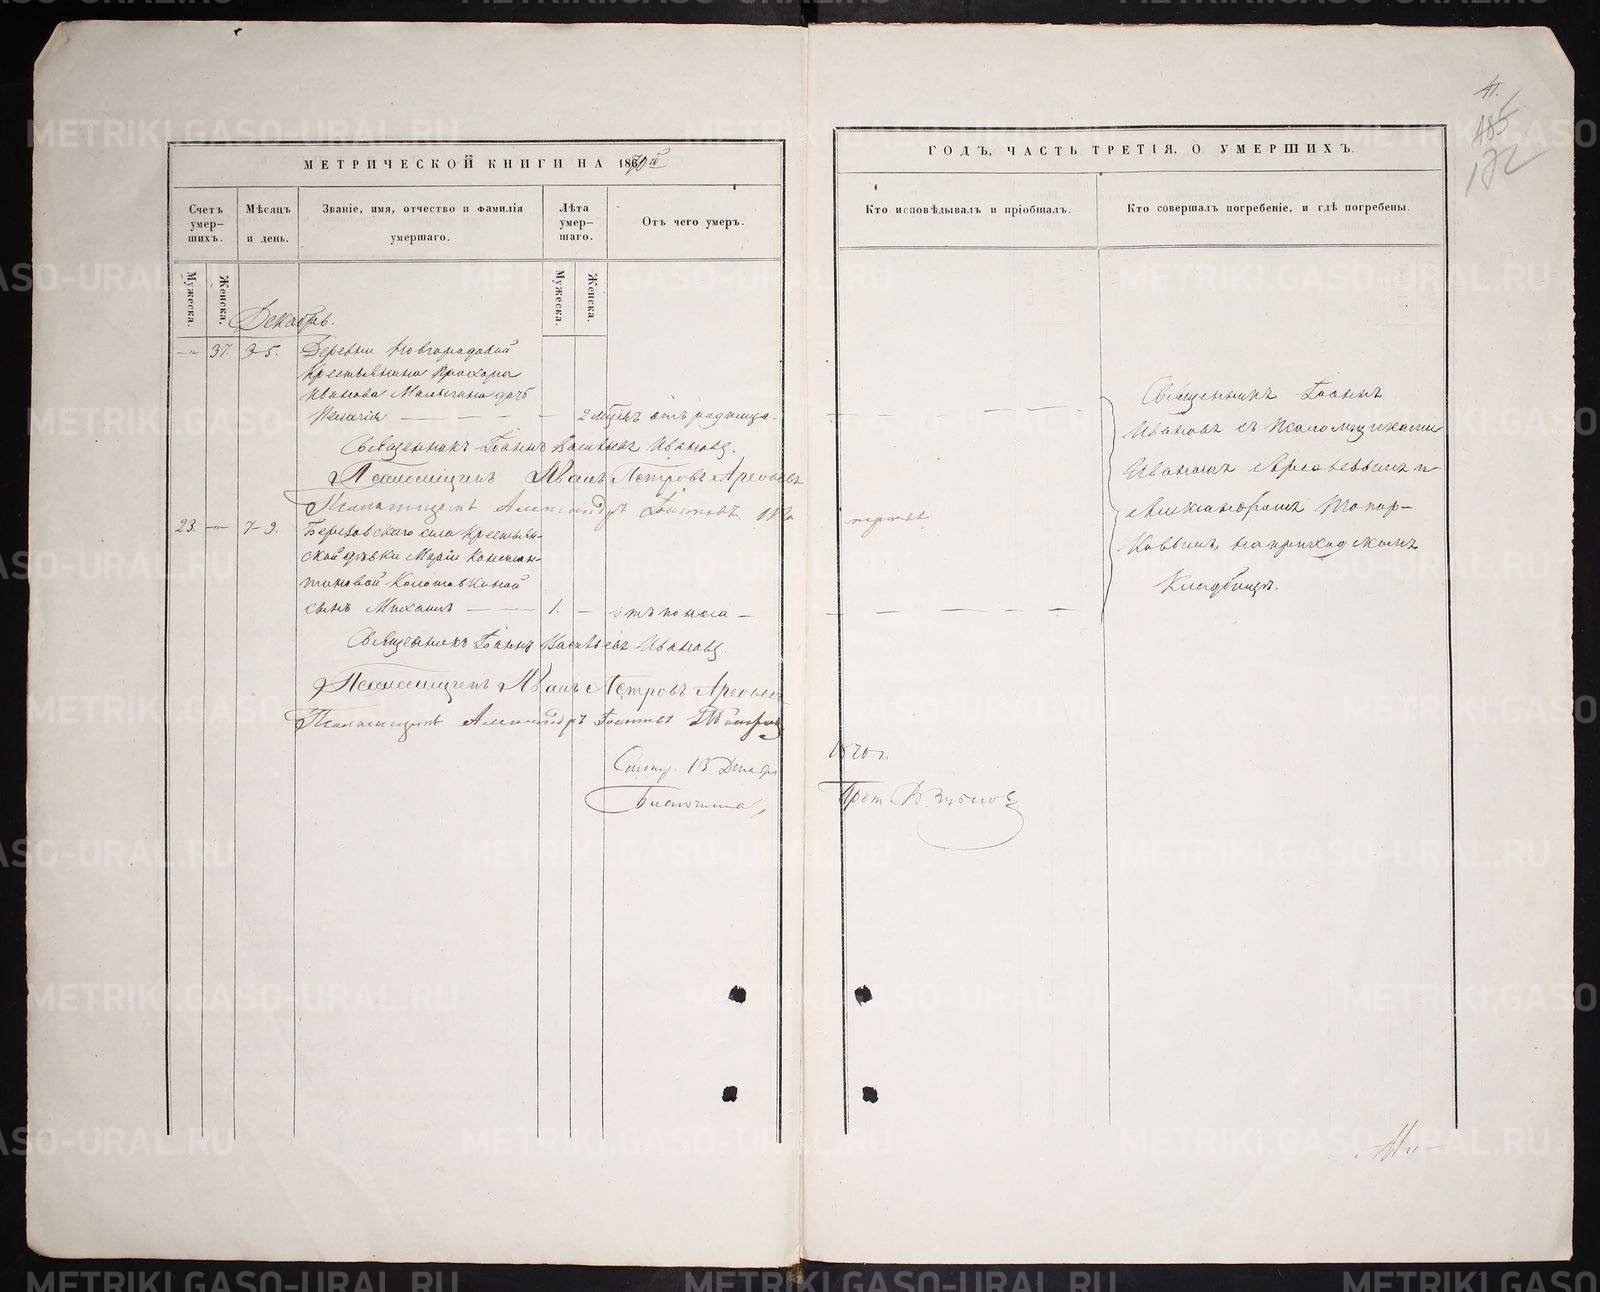 41.
485
172
МЕТРИЧЕСКОЙ КНИГИ НА 1870й
ГОДЪ, ЧАСТЬ ТРЕТІЯ, О УМЕРШИХЪ.
Счетъ умер-шихъ.
Мѣсяцъ и день.
Званіе, имя, отчество и фамилія умершаго.
Лѣта умер-шаго.
Отъ чего умеръ.
Кто исповѣдывалъ и пріобщалъ.
Кто совершалъ погребеніе, и гдѣ погребены.
Мужеска.
Женска.
Мужеска.
Женска.
Декабрь.
37. 3-5. Деревни Новгородовой
крестьянина Прохора
Иванова Малыгина дочь
Пелагія 2 мѣсяц. отъ родимца
Священникъ Іоаннъ Васильевъ Ивановъ.
Псаломщикъ Иванъ Петровъ Арефьевъ
Псаломщикъ Александръ Іоанновъ
23. 7-9. Березовскаго села крестьян-
ской дѣвки Маріи Констан-
тиновой Колотовкиной
сынъ Михаилъ 1. отъ поноса
Священникъ Іоаннъ Васильевъ Ивановъ.
Псаломщикъ Иванъ Петровъ Арефьевъ
Псаломщикъ Александръ Іоанновъ Топорковъ
13 Декабря 1870 г.
Благочинный, Прот.
Священникъ Іоаннъ
Ивановъ съ Псаломщиками
Иваномъ Арефьевымъ и
Александромъ Топор-
ковымъ, на приходскомъ
кладбищѣ.
METRIKI.GASO-URAL.RU